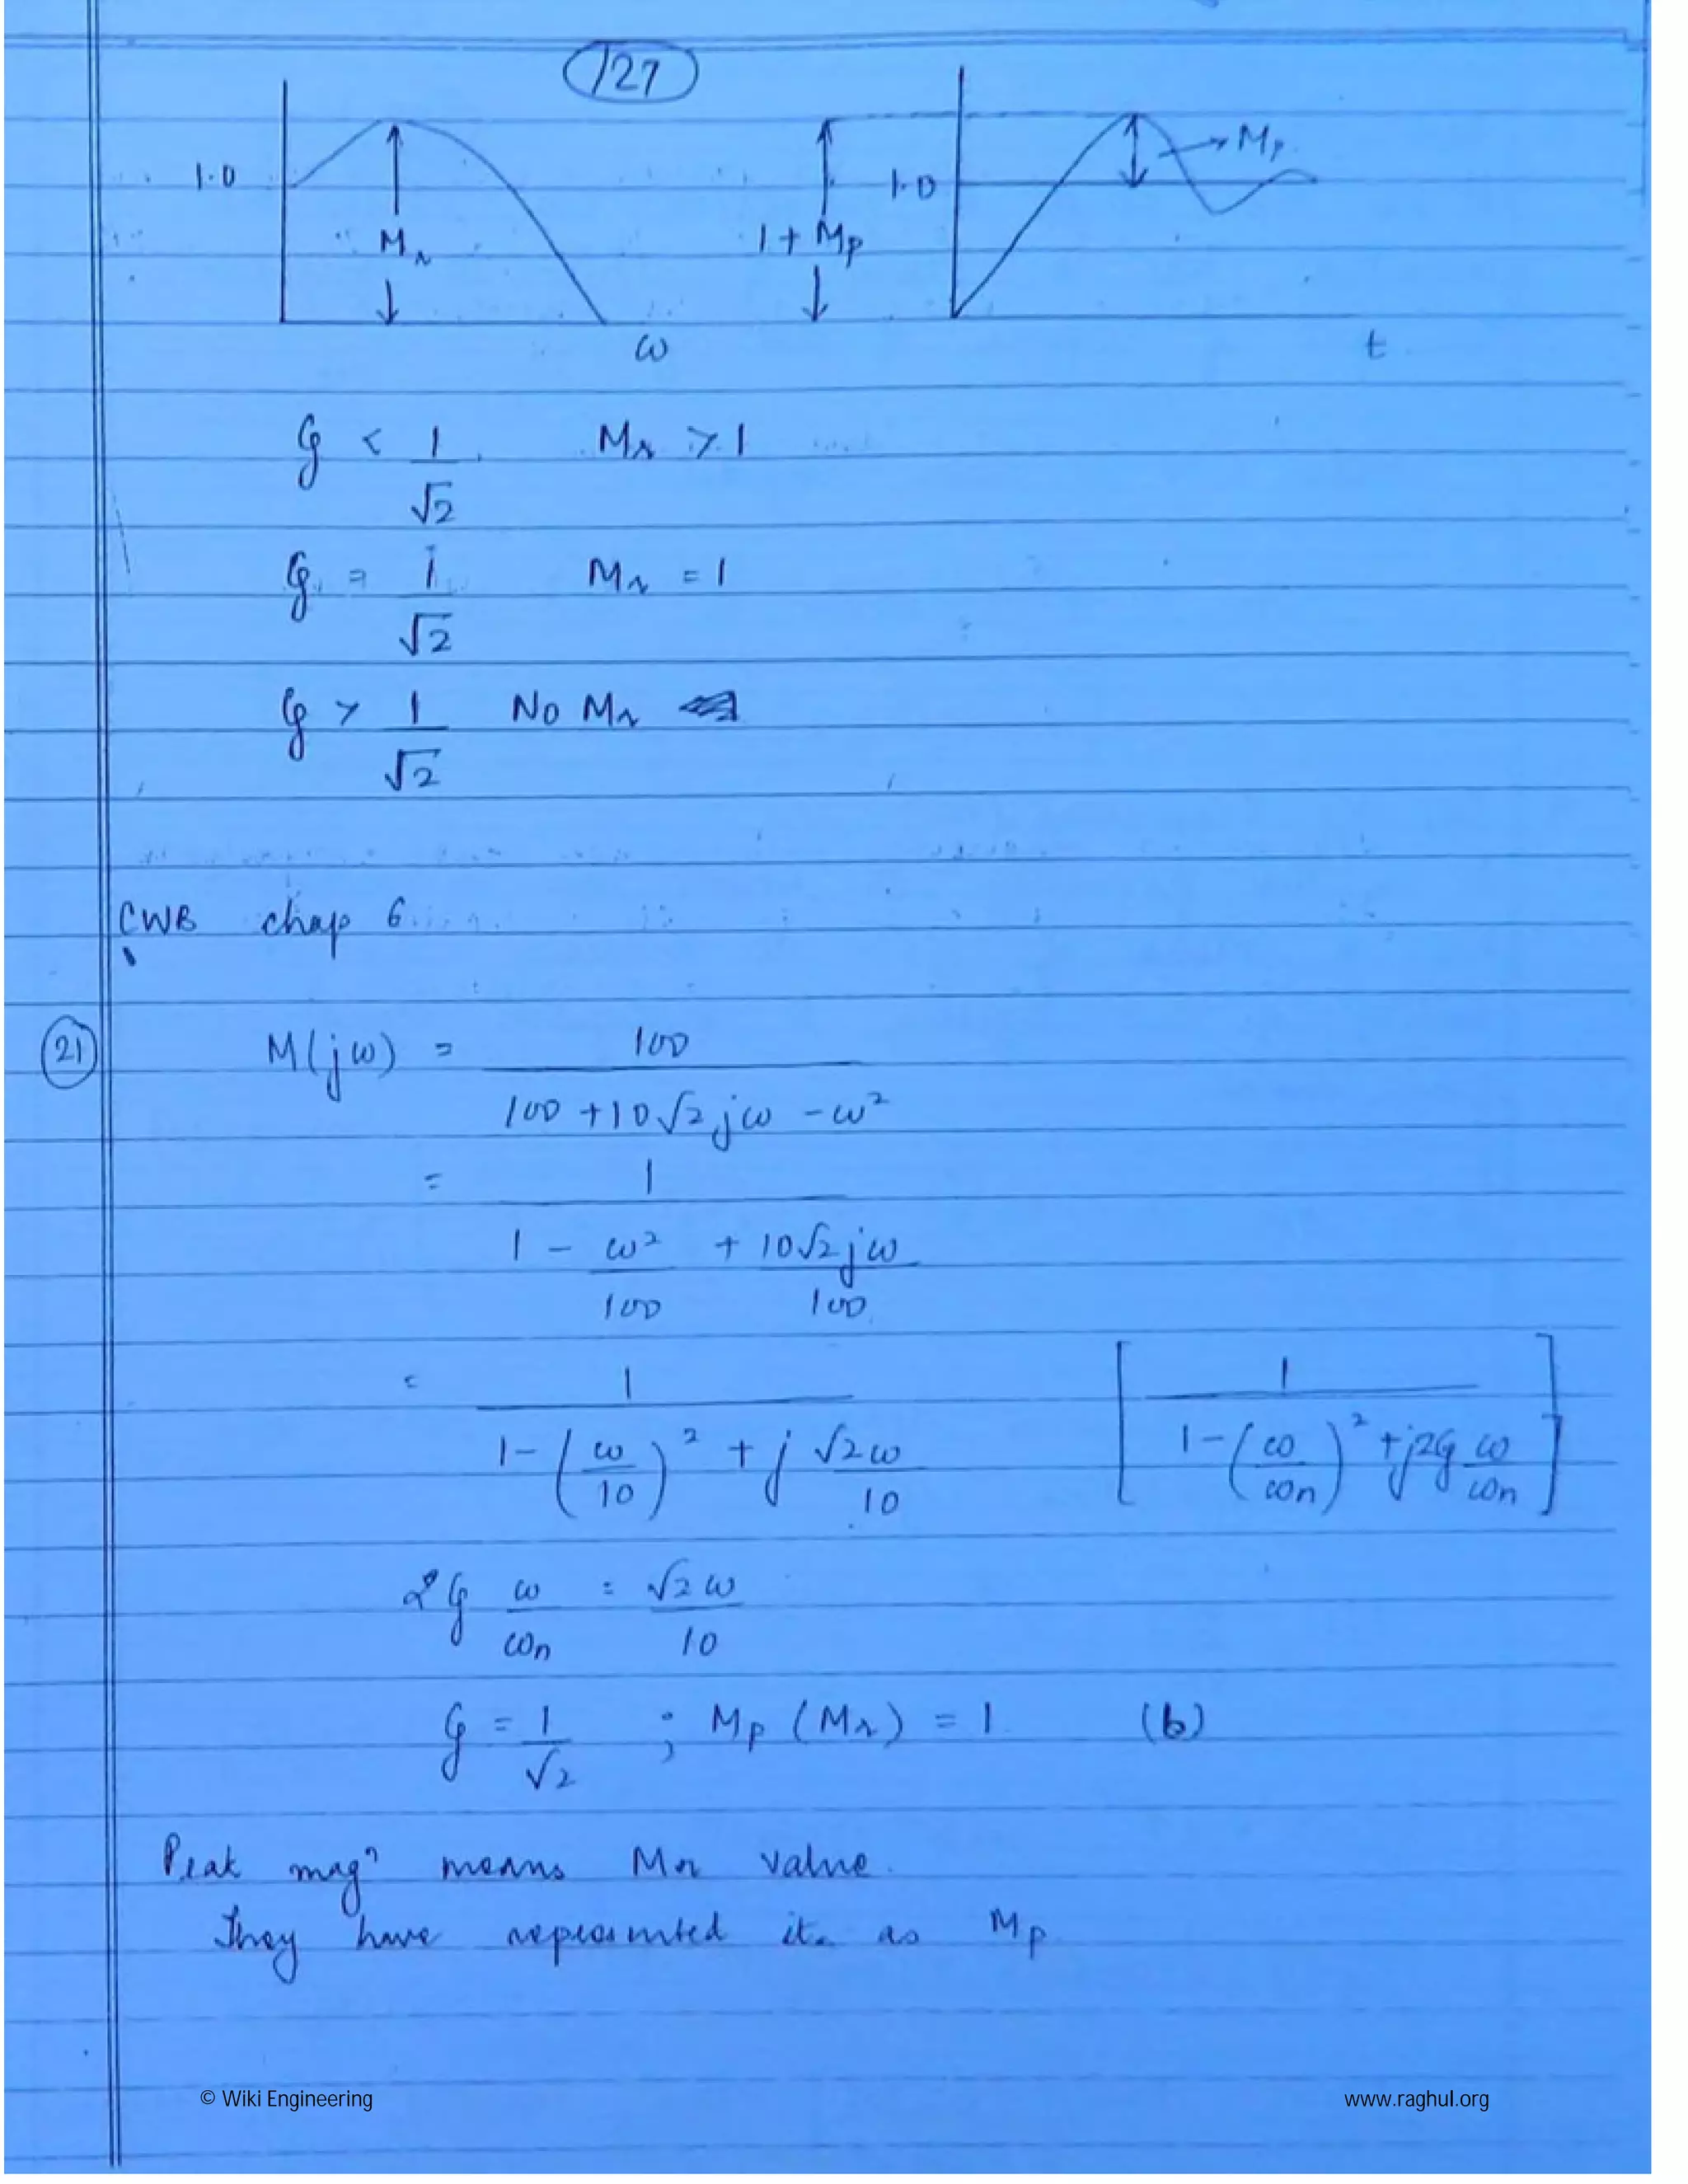 127
1.0
Mr
ω
1 + Mp
1.0
Mp
t
ξ < 1/√2    Mr > 1
ξ = 1/√2    Mr = 1
ξ > 1/√2    No Mr
CWB chap 6
(21) M(jω) = 100 / (100 + 10√2 jω - ω²)
= 1 / (1 - ω²/100 + 10√2 jω/100)
= 1 / (1 - (ω/10)² + j √2ω/10)    [1 / (1 - (ω/ωn)² + j2ξ ω/ωn)]
2ξ ω/ωn = √2ω/10
ξ = 1/√2 ; Mp (Mr) = 1    (b)
Peak magⁿ means Mr value.
They have represented it as Mp
© Wiki Engineering
www.raghul.org